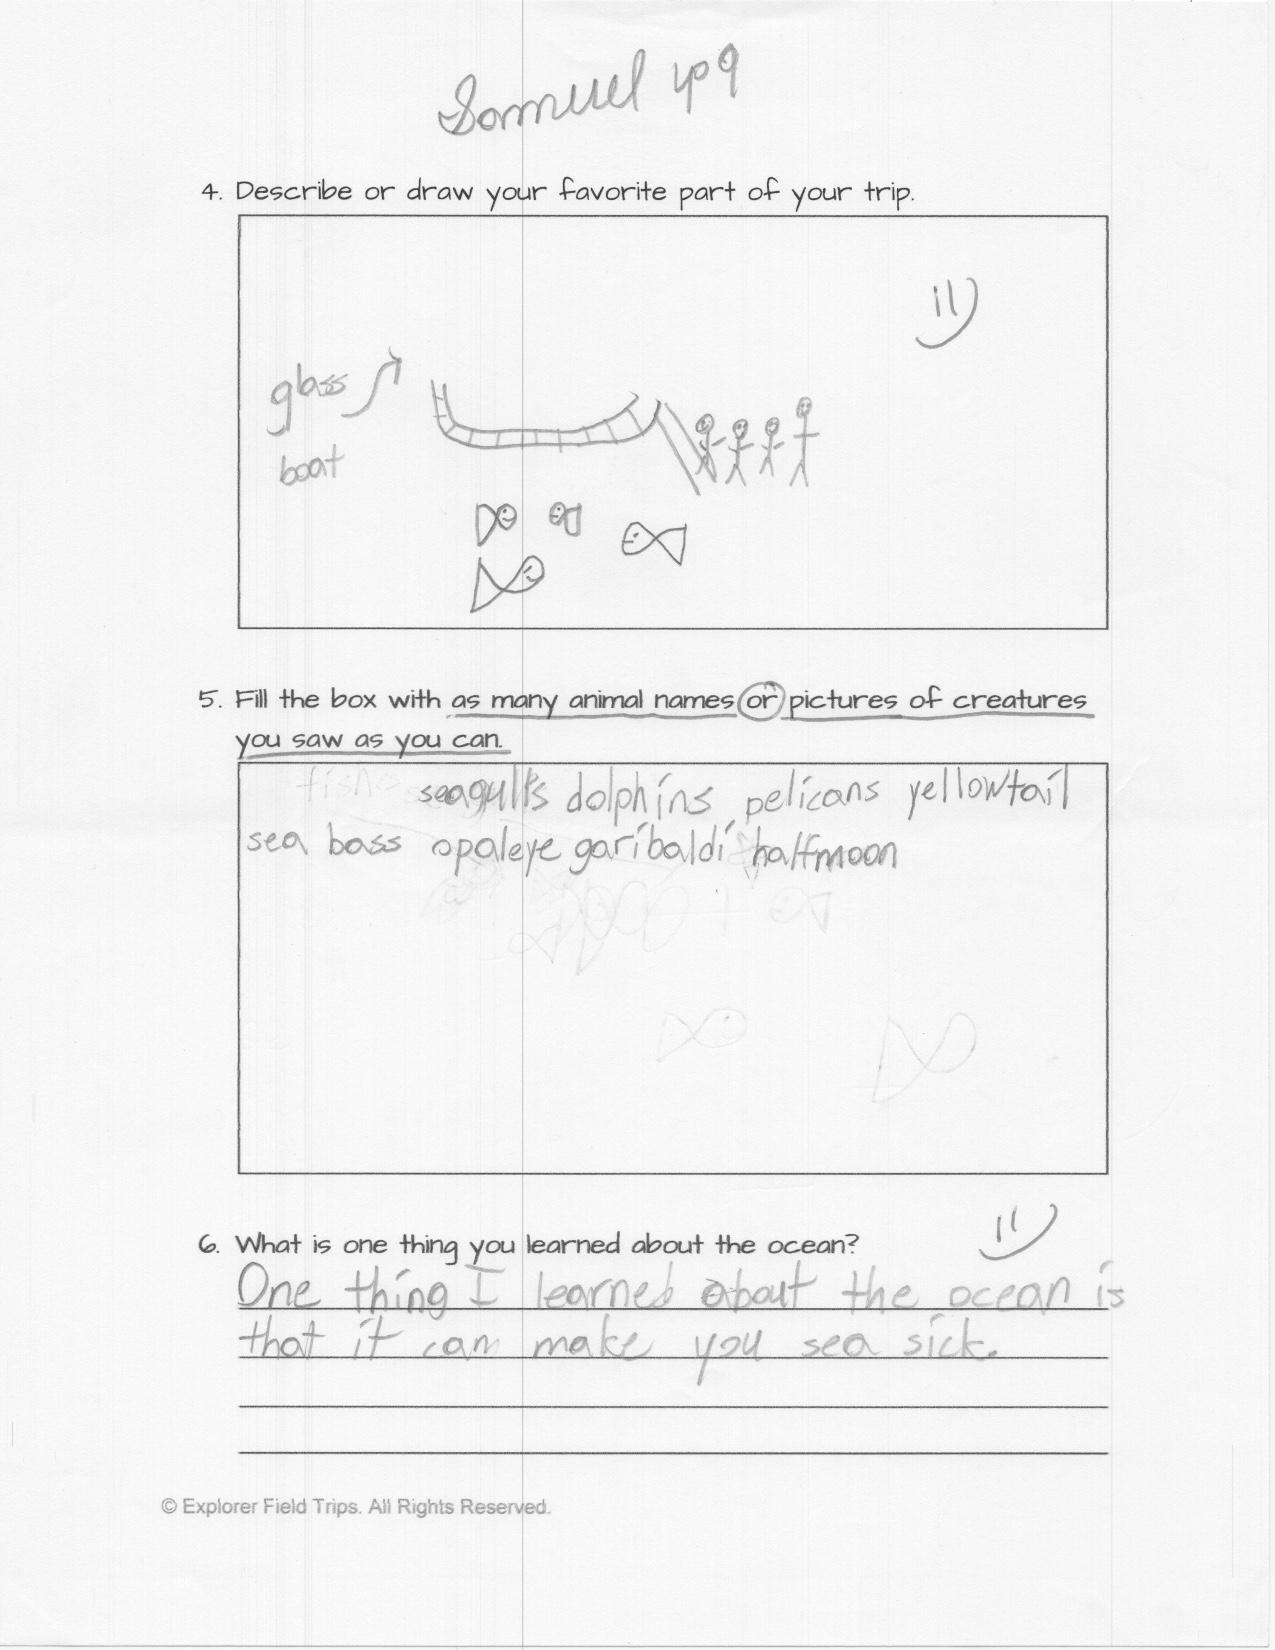 Samuel yo9
4. Describe or draw your favorite part of your trip.
glass
boat
5. Fill the box with as many animal names or pictures of creatures
you saw as you can.
fish seagulls dolphins pelicans yellowtail
sea bass opaleye garibaldi halfmoon
6. What is one thing you learned about the ocean?
One thing I learned about the ocean is
that it can make you sea sick.
© Explorer Field Trips. All Rights Reserved.